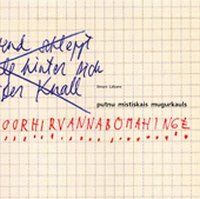 end schleppt
hinter sich
der Knall
putnu mistiskais mugurkauls
OORHIRVANNABOMAHINGE